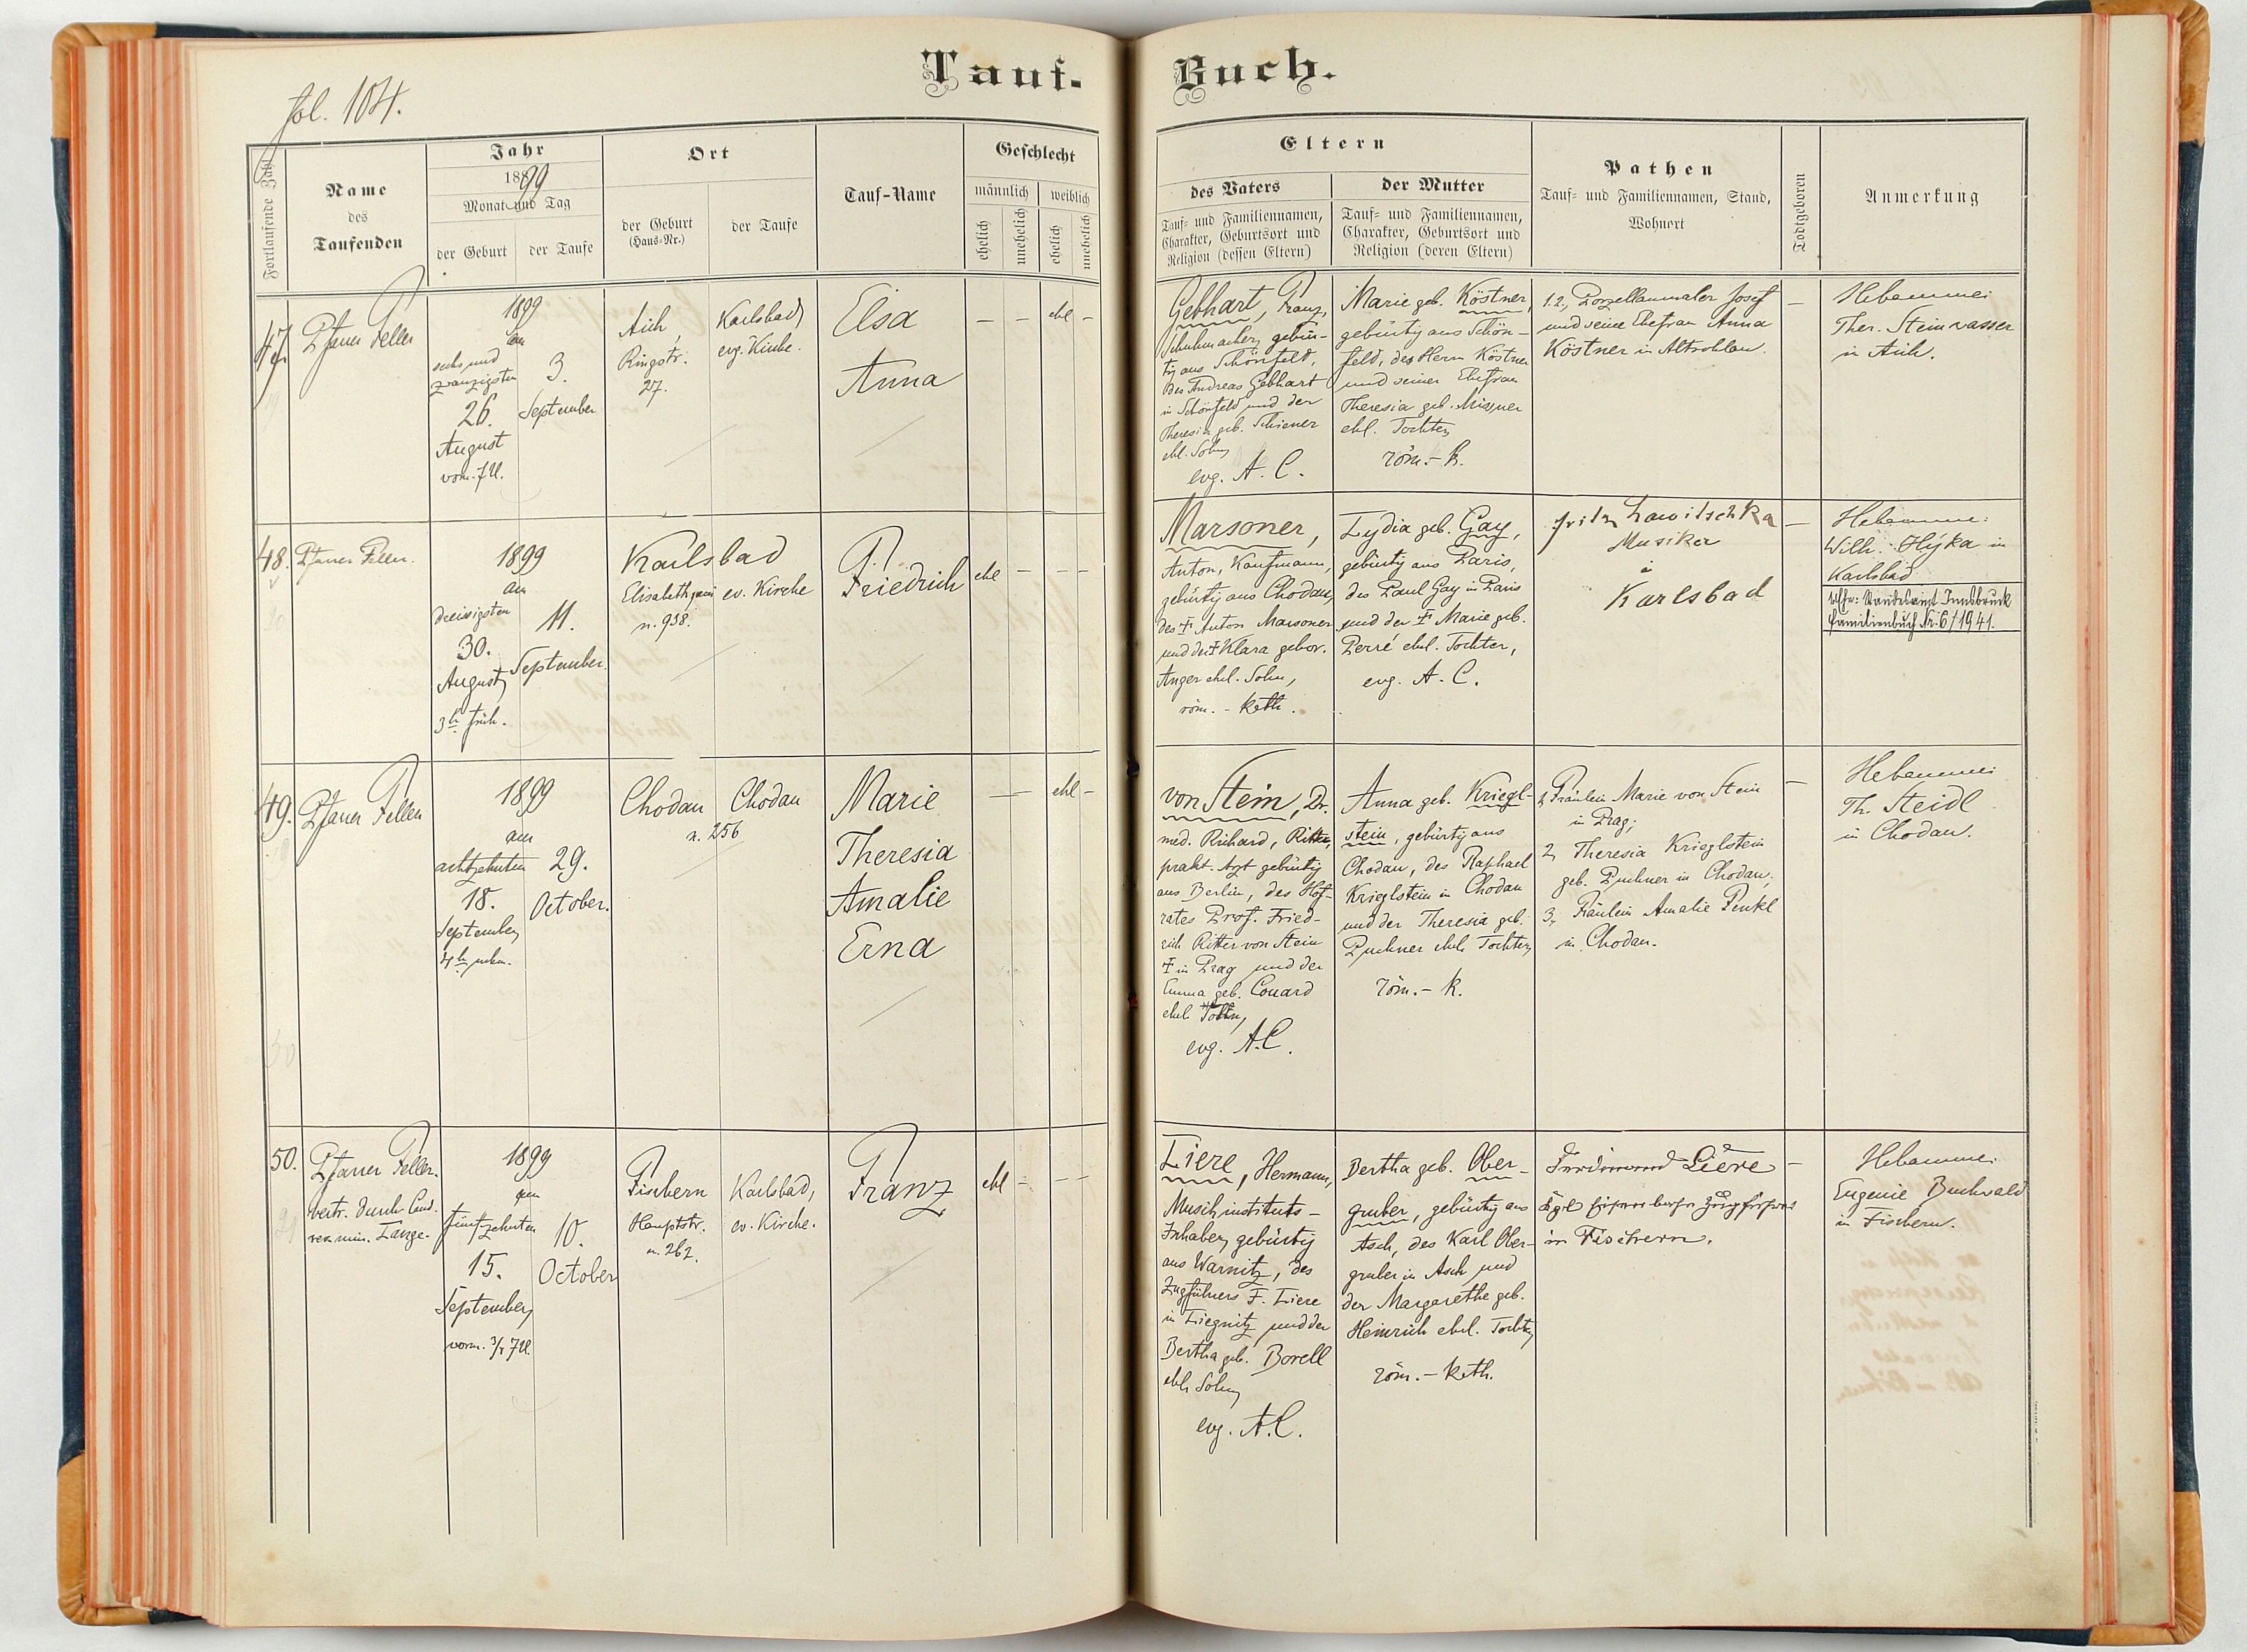 Tauf-Buch.
fol. 104.
Fortlaufende Zahl
Name
des
Taufenden
Jahr
1899
Monat und Tag
der Geburt
der Taufe
Ort
der Geburt
(Haus-Nr.)
der Taufe
Tauf-Name
Geschlecht
männlich
weiblich
ehelich
unehelich
ehelich
unehelich
Eltern
des Vaters
Tauf- und Familiennamen,
Charakter, Geburtsort und
Religion (dessen Eltern)
der Mutter
Tauf- und Familiennamen,
Charakter, Geburtsort und
Religion (deren Eltern)
Pathen
Tauf- und Familiennamen, Stand,
Wohnort
Todtgeboren
Anmerkung
47.
Pfarrer Feller
1899
am
sechs und
zwanzigsten
26.
August
vorm. 7 U.
3.
September
Aich,
Ringstr.
27.
Karlsbad,
evg. Kirche.
Elsa
Anna
– – ehl –
Gebhart, Franz,
Schuhmacher, gebür-
tig aus Schönfeld,
des Andreas Gebhart
in Schönfeld und der
Theresia geb. Schiener
ehl. Sohn,
evg. A. C.
Marie geb. Köstner,
gebürtig aus Schön-
feld, des Herrn Köstner
und seiner Ehefrau
Theresia geb. Missner
ehl. Tochter,
röm.-k.
1.2, Porzellanmaler Josef
und seine Ehefrau Anna
Köstner in Altrohlau.
–
Hebamme:
Ther. Steinwasser
in Aich.
48.
Pfarrer Feller.
1899
am
dreissigsten
30.
August,
3h früh.
11.
September.
Karlsbad
Elisabethquai
n. 938.
ev. Kirche
Friedrich
ehl – – –
Marsoner,
Anton, Kaufmann,
gebürtig aus Chodau,
des † Anton Marsoner
und der † Klara gebor.
Anger ehel. Sohn,
röm.-kath.
Lydia geb. Gay,
gebürtig aus Paris,
des Paul Gay in Paris
und der † Marie geb.
Perré ehel. Tochter,
evg. A. C.
Fritz Lawitschka
Musiker
in
Karlsbad
–
Hebamme:
Wilh. Hýka in
Karlsbad
Standesamt Innsbruck
Familienbuch Nr. 6/1941.
49.
Pfarrer Feller
1899
am
achtzehnten
18.
September,
4h nchm.
29.
October.
Chodau
Chodau
n. 256
Marie
Theresia
Amalie
Erna
– ehl –
von Stein, Dr.
med. Richard, Ritter,
prakt. Arzt gebürtig
aus Berlin, des Hof-
rates Prof. Fried-
rich Ritter von Stein
† in Prag und der
Emma geb. Couard
ehel. Sohn,
evg. A.C.
Anna geb. Kriegl-
stein, gebürtig aus
Chodau, des Raphael
Krieglstein in Chodau
und der Theresia geb.
Puchner ehel. Tochter,
röm.-k.
1, Fräulein Marie von Stein
in Prag;
2, Theresia Krieglstein
geb. Puchner in Chodau;
3, Fräulein Amalie Penkl
in Chodau.
–
Hebamme:
Th. Steidl
in Chodau.
50.
Pfarrer Feller.
vertr. durch Cand.
rev. min. Lange.
1899
am
fünfzehnten
15.
September,
vorm. 3/4 7 U.
10.
October
Fischern
Hauptstr.
n. 262.
Karlsbad,
ev. Kirche.
Franz
ehl – – –
Liere, Hermann,
Musikinstituts-
Inhaber, gebürtig
aus Warnitz, des
Zugführers F. Liere
in Liegnitz und der
Bertha geb. Borell
ehl. Sohn,
evg. A.C.
Bertha geb. Ober-
gruber, gebürtig aus
Asch, des Karl Ober-
gruber in Asch und
der Margarethe geb.
Heinrich ehel. Tochter,
röm.-kath.
Ferdinand Liere
Kgl. Eisenbahn Zugführer
in Fischern.
–
Hebamme:
Eugenie Buchwald
in Fischern.